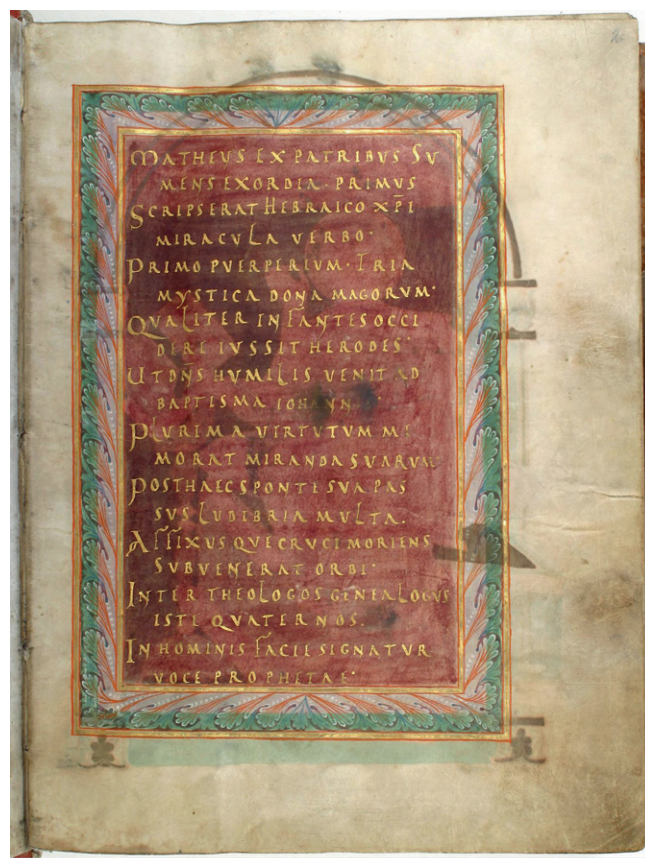 MATHEUS EX PATRIBUS SU
MENS EXORDIA · PRIMUS
SCRIPSERAT HEBRAICO XP̄I
MIRACVLA VERBO ·
PRIMO PVERPERIVM · TRIA
MYSTICA DONA MAGORVM ·
QVALITER INFANTES OCCI
DERE IVSSIT HERODES ·
UT DN̄S HVMILIS VENIT AD
BAPTISMA IOHANN
PLURIMA VIRTUTVM ME
MORAT MIRANDA SUARVM
POST HAEC SPONTE SVA PAS
SUS LUDIBRIA MULTA ·
AFFIXUS QUE CRUCI MORIENS
SUBVENERAT ORBI ·
INTER THEOLOGOS GENEALOGUS
ISTE QVATERNOS ·
IN HOMINIS FACIE SIGNATVR
VOCE PROPHETAE ·